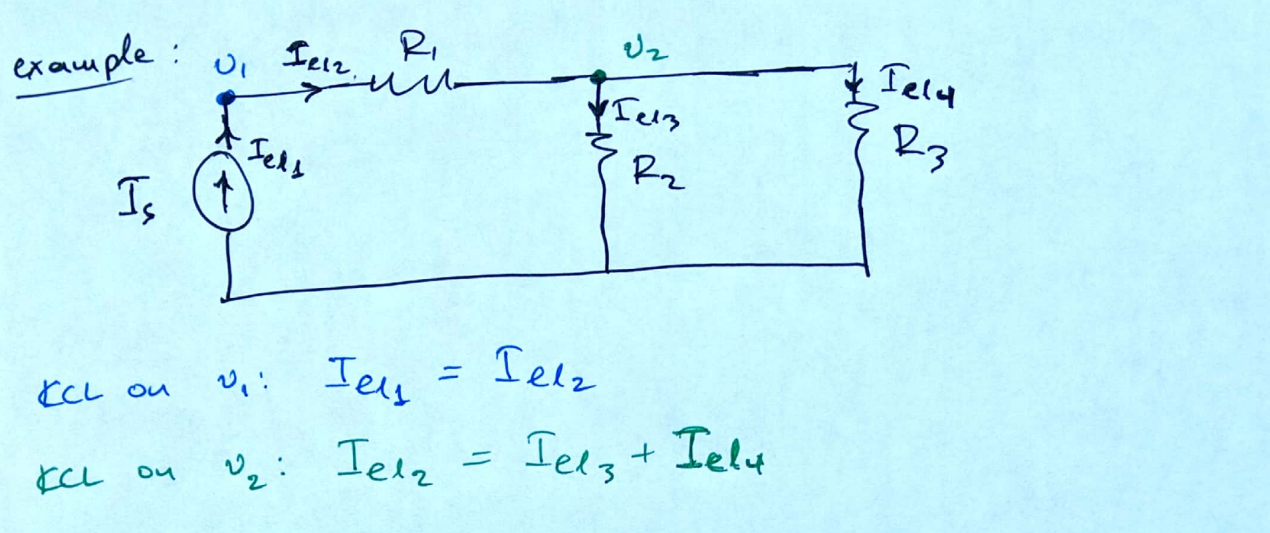 example :
υ₁ Iel₂ R₁ υ₂
Iel₁ Iel₃ Iel₄
Iₛ R₂ R₃
KCL on υ₁: Iel₁ = Iel₂
KCL on υ₂: Iel₂ = Iel₃ + Iel₄